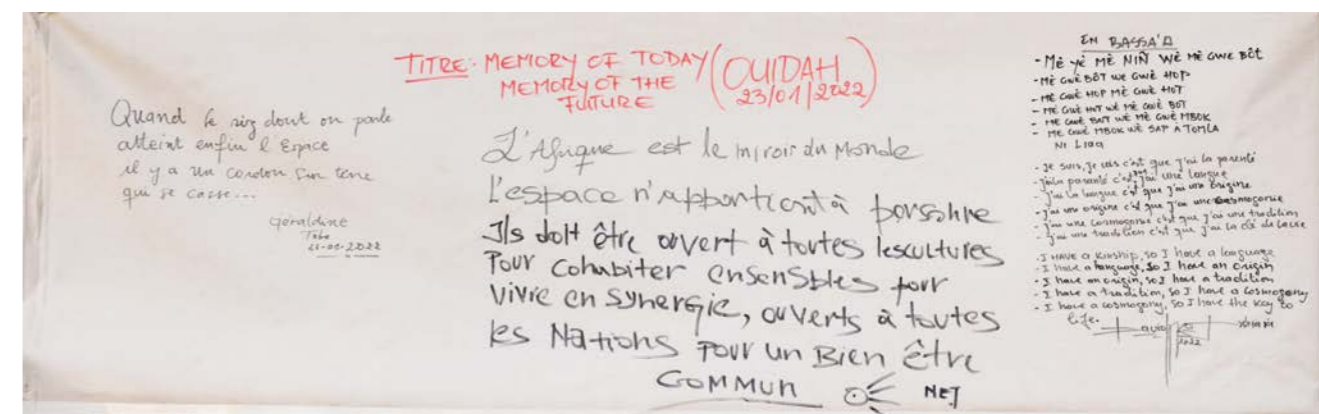 Quand le riz dont on parle
atteint enfin l'Espace
il y a un cordon sur terre
qui se casse...
Géraldine
Tobe
23-01-2022
TITRE: MEMORY OF TODAY
MEMORY OF THE
FUTURE
(OUIDAH
23/01/2022)
L'Afrique est le miroir du Monde
L'espace n'appartient à personne
Ils doit être ouvert à toutes les cultures
Pour cohabiter ensensbles pour
vivre en synergie, ouverts à toutes
les Nations pour un Bien être
COMMUN
NET
EN BASSA'A
- MÈ YÉ MÈ NIÑ WÈ MÈ GWE BÔT
- MÈ GWÈ BÔT WE GWÈ HOP
- MÈ GWÈ HOP MÈ GWÈ HOT
- MÈ GWÈ HOT WÈ MÈ GWÈ BOT
- MÈ GWÈ BOT WÈ MÈ GWÈ MBOK
- MÈ GWÈ MBOK WÈ SAP A TOMLA
NI
- Je suis, je vis c'est que j'ai la parenté
- J'ai la parenté c'est que j'ai une langue
- J'ai la langue c'est que j'ai une origine
- J'ai une origine c'est que j'ai une cosmogonie
- J'ai une cosmogonie c'est que j'ai une tradition
- J'ai une tradition c'est que j'ai la clé de la vie
- I HAVE a Kinship, so I have a language
- I have a language, so I have an origin
- I have an origin, so I have a tradition
- I have a tradition, so I have a cosmogony
- I have a cosmogony, so I have the key to
life.
2022